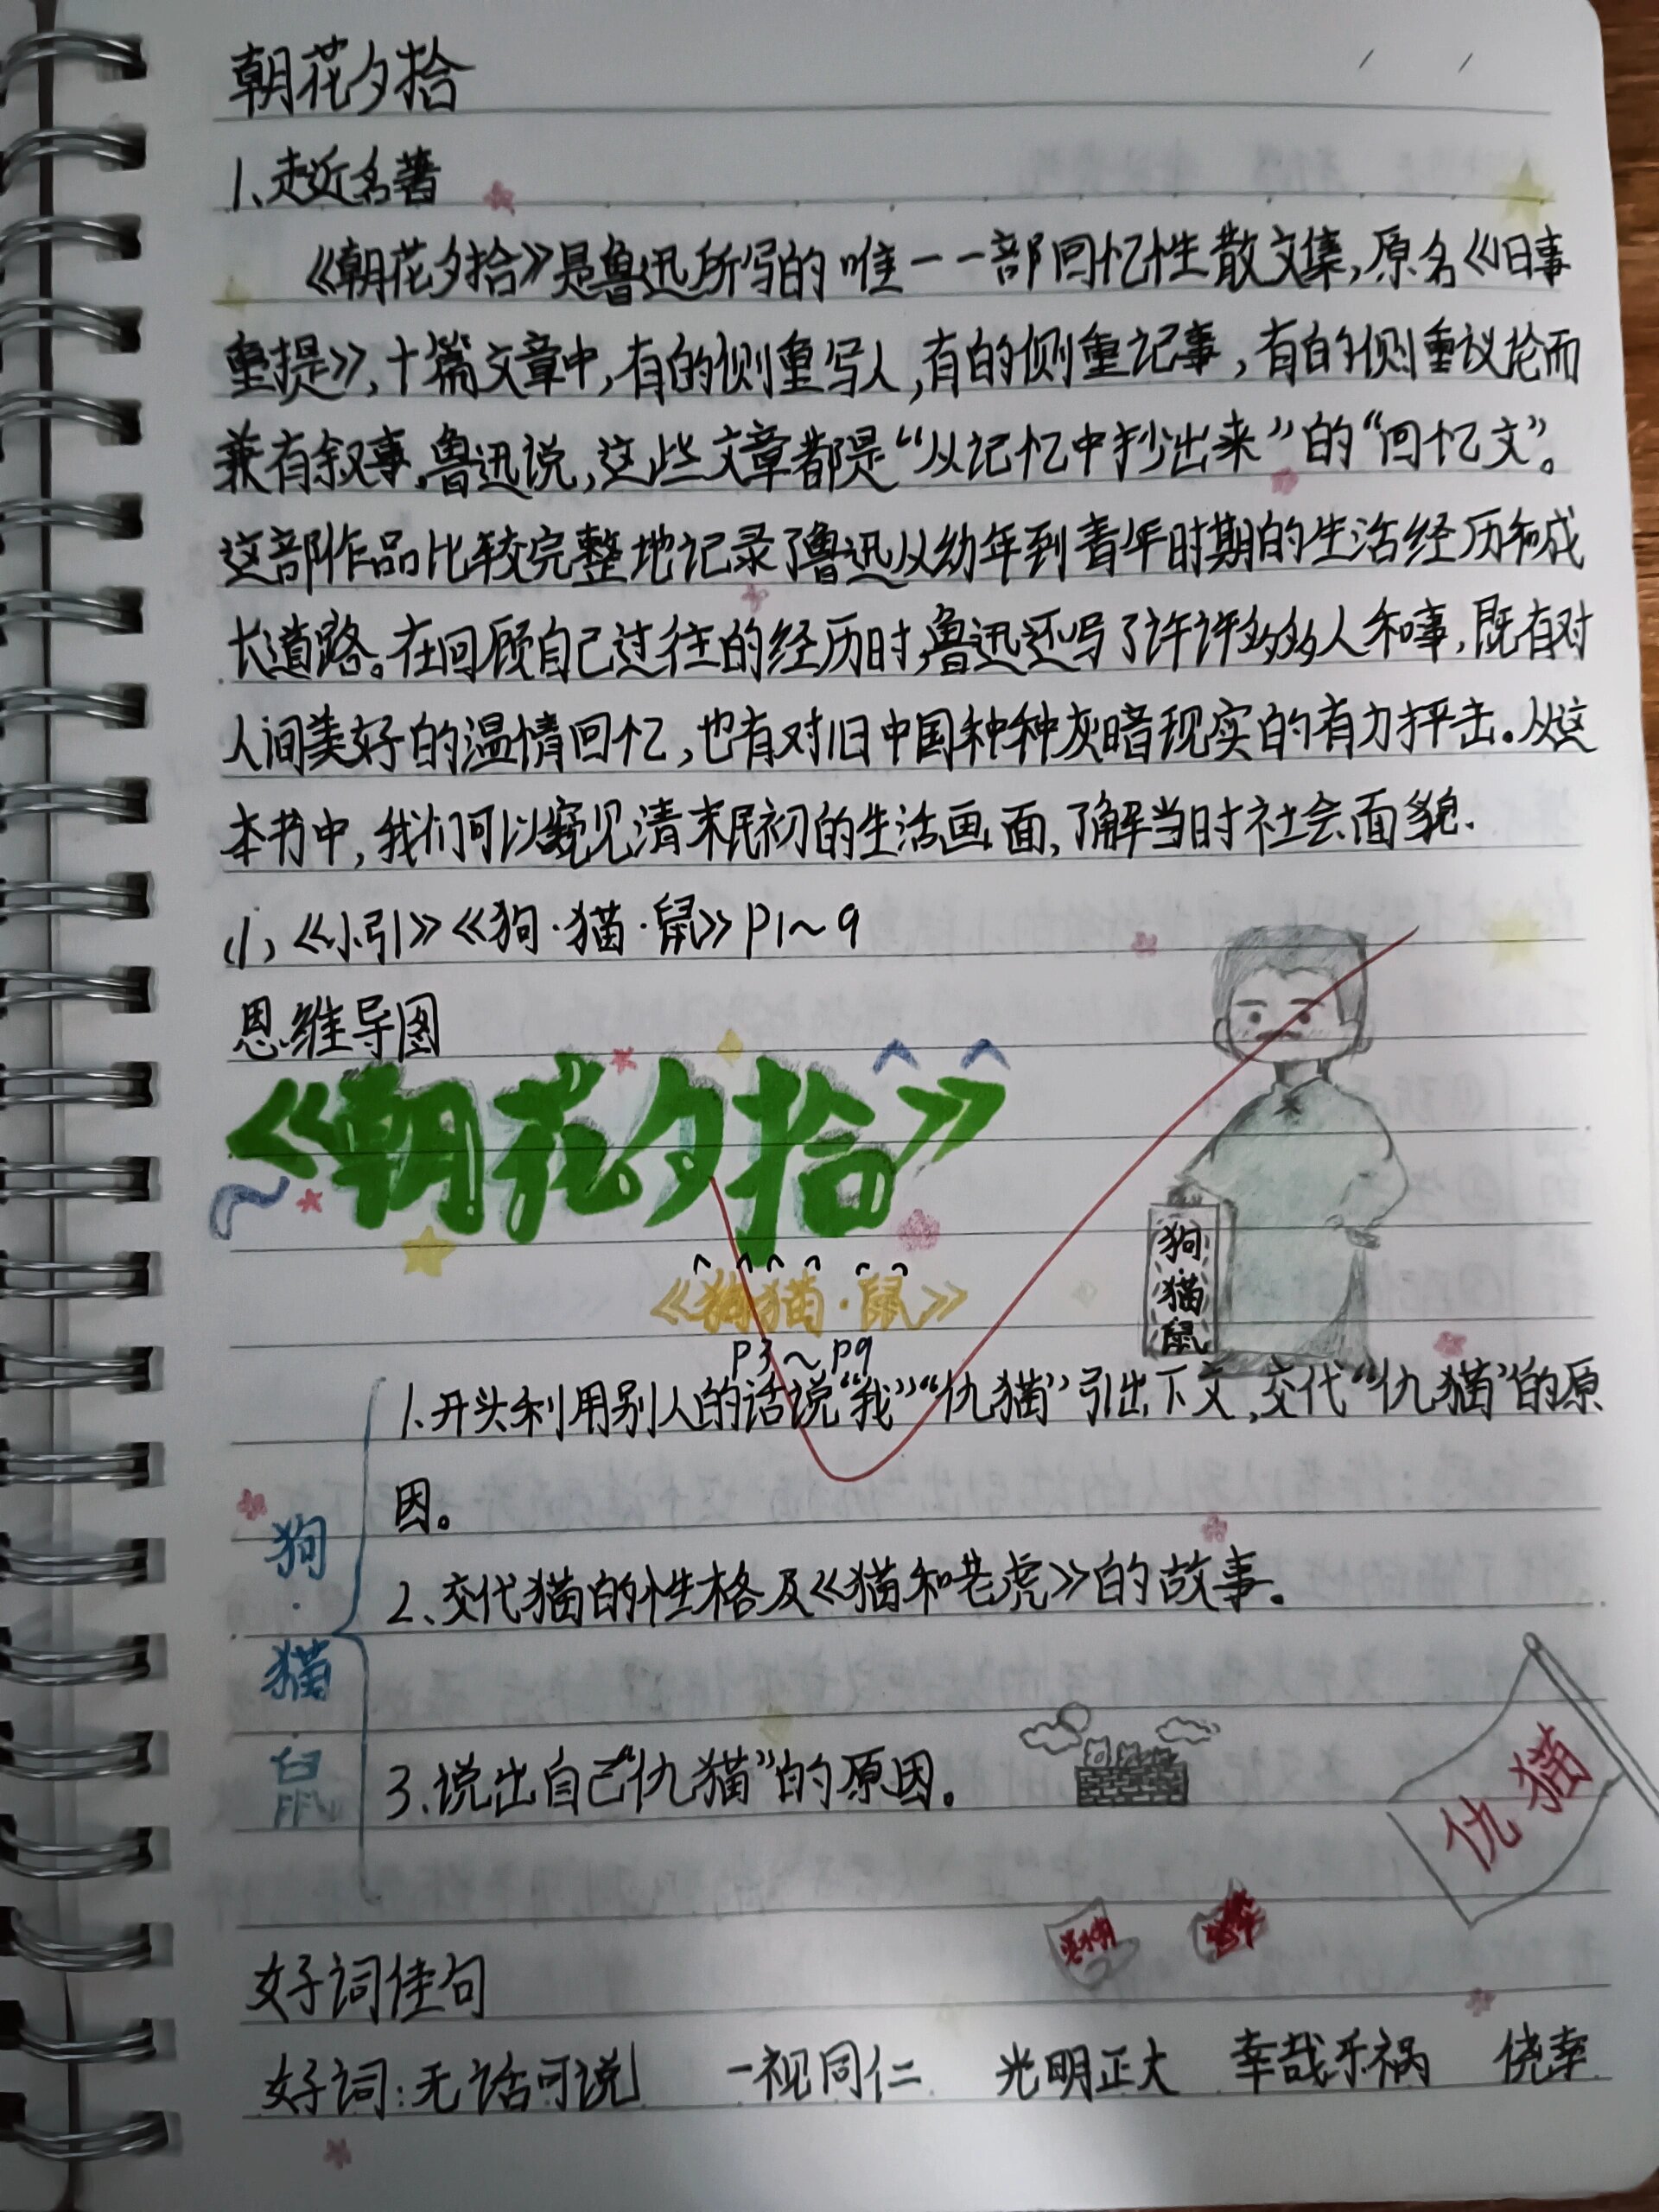 朝花夕拾
1、走近名著
《朝花夕拾》是鲁迅所写的唯一一部回忆性散文集,原名《旧事
重提》,十篇文章中,有的侧重写人,有的侧重记事,有的侧重议论而
兼有叙事。鲁迅说,这些文章都是“从记忆中抄出来”的“回忆文”。
这部作品比较完整地记录了鲁迅从幼年到青年时期的生活经历和成
长道路。在回顾自己过往的经历时,鲁迅还写了许许多多人和事,既有对
人间美好的温情回忆,也有对旧中国种种灰暗现实的有力抨击。从这
本书中,我们可以窥见清末民初的生活画面,了解当时社会面貌.
(1)《小引》《狗·猫·鼠》P1~9
思维导图
《朝花夕拾》
《狗·猫·鼠》
P3~P9
狗·猫鼠
狗·猫·鼠
1、开头利用别人的话说“我”“仇猫”引出下文,交代“仇猫”的原
因。
2、交代猫的性格及《猫和老虎》的故事。
3、说出自己“仇猫”的原因。
仇猫
好词佳句
好词:无话可说 一视同仁 光明正大 幸哉乐祸 侥幸